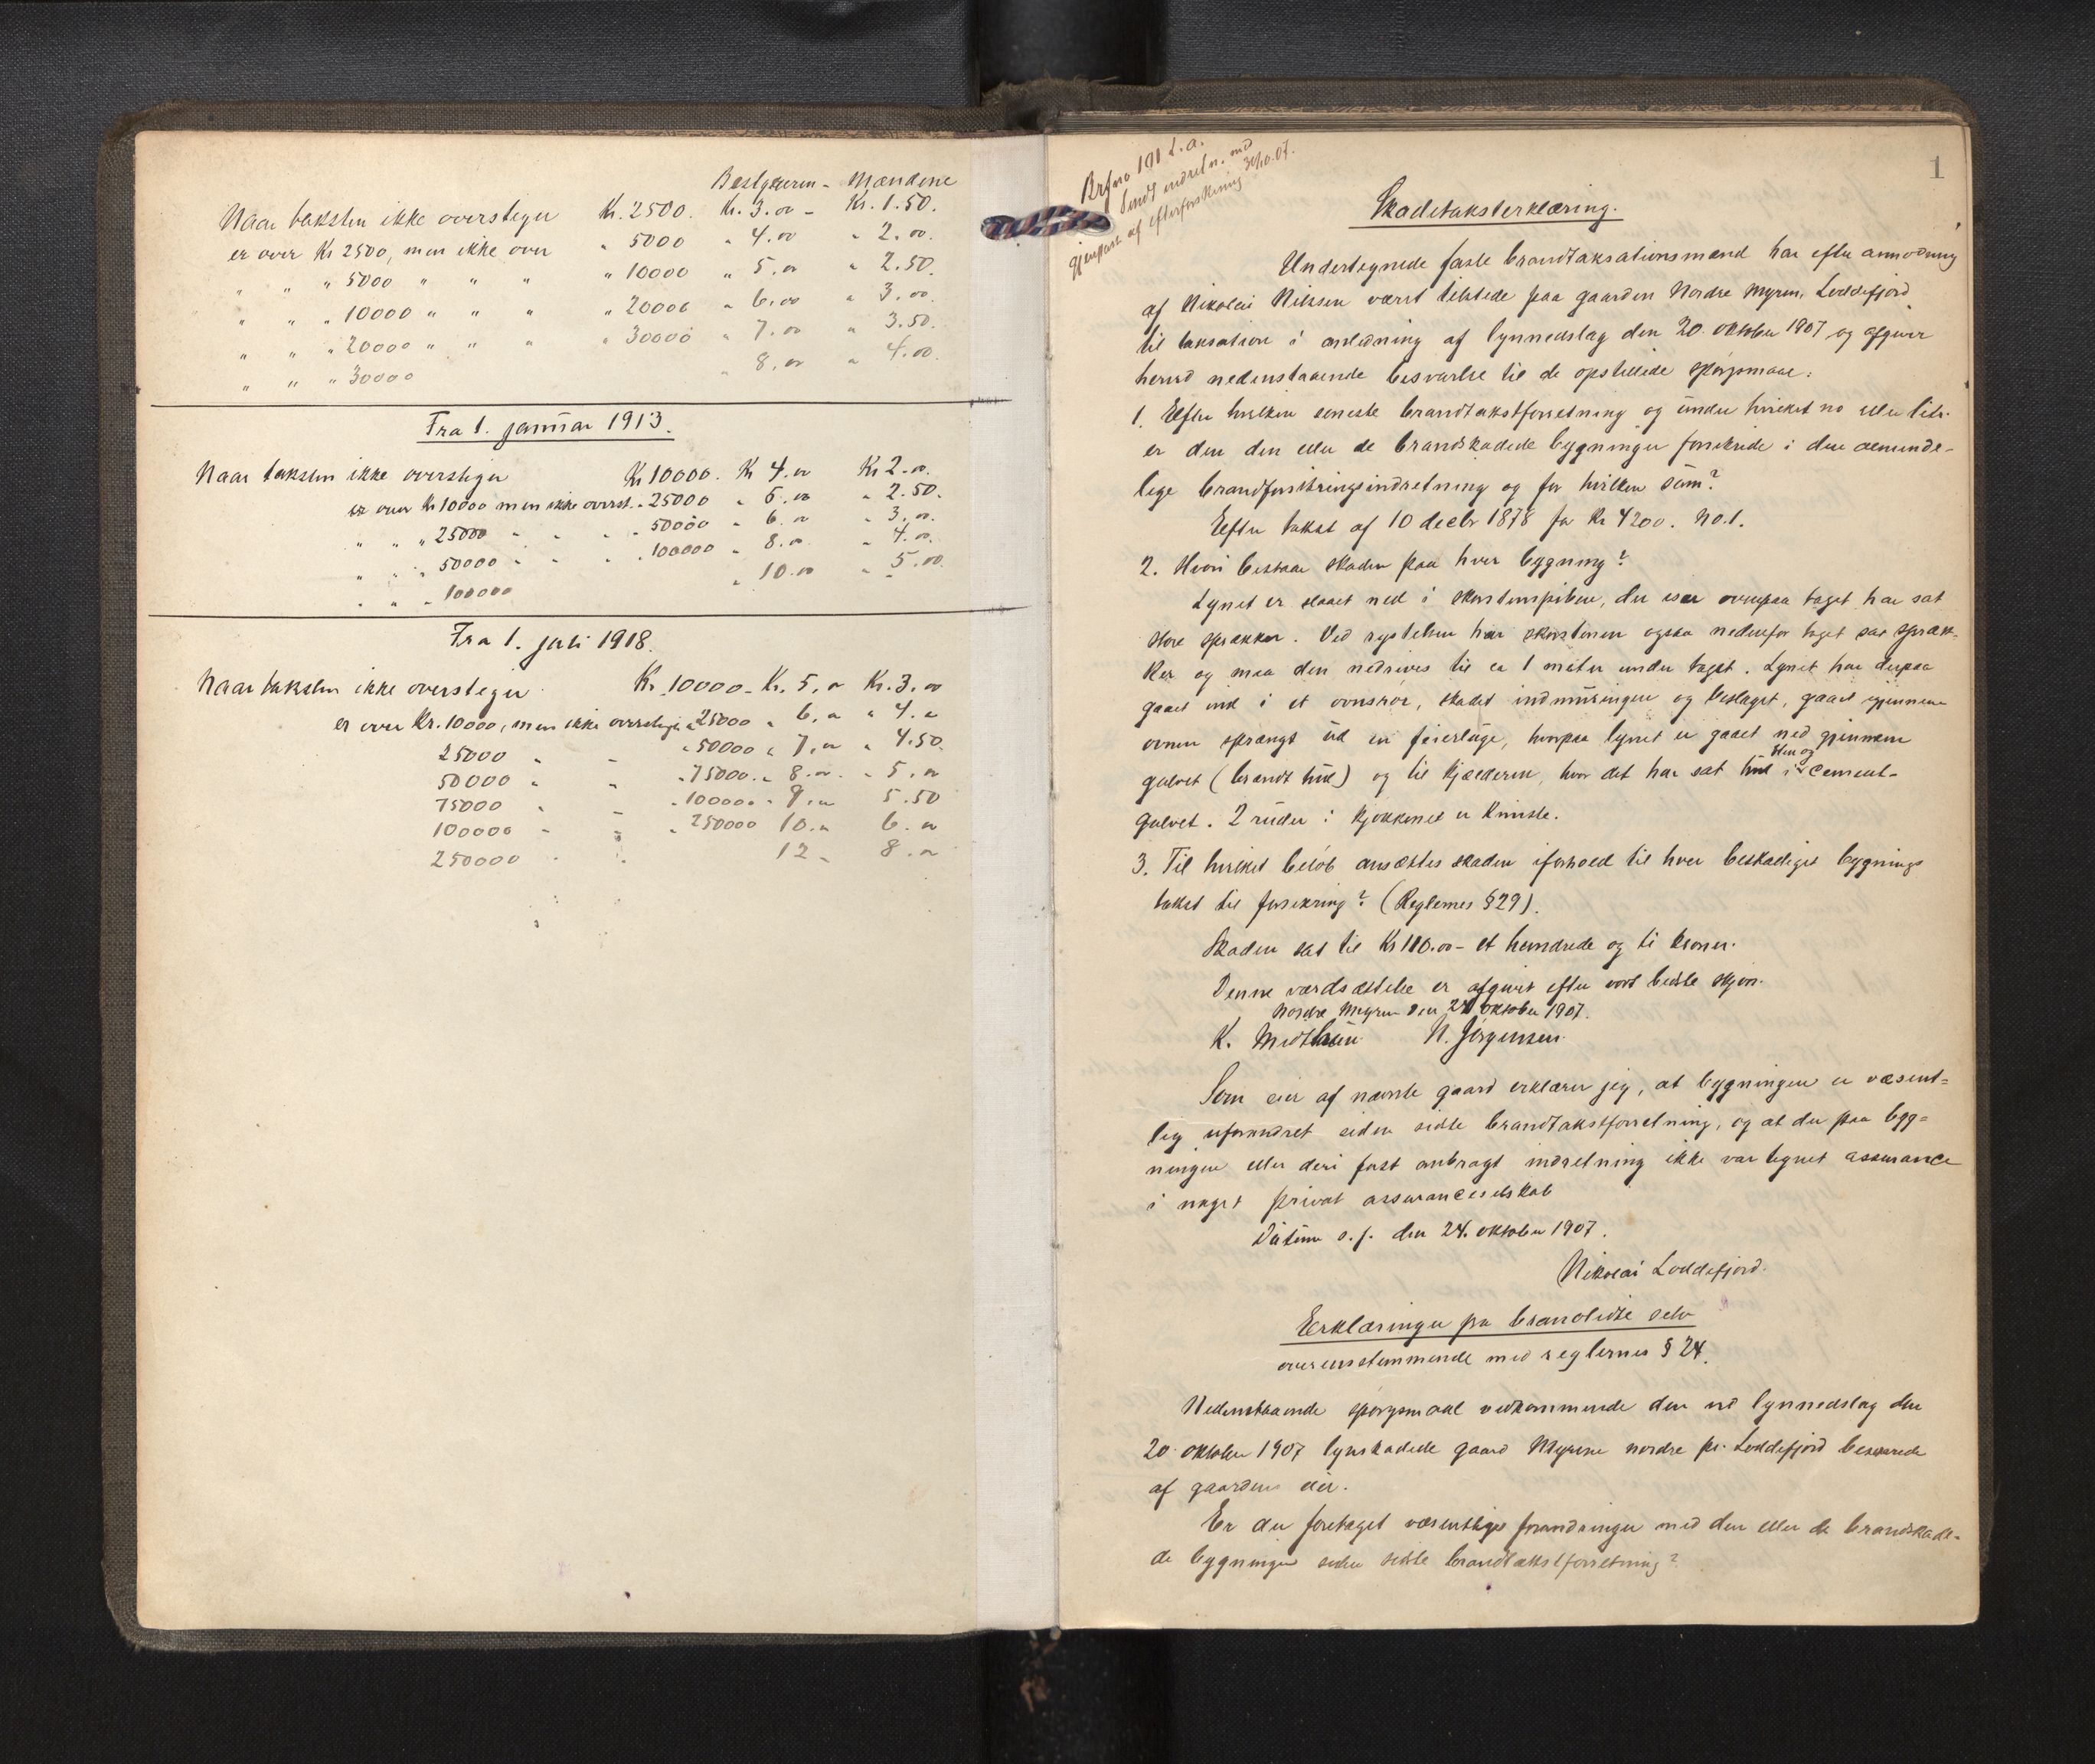 Bestyreren - Mændene
Naar taksten ikke overstiger Kr. 2500. Kr. 3.00 - Kr. 1.50.
er over Kr 2500, men ikke over " 5000 " 4.00 " 2.00.
" " " 5000 " " " " 10000 " 5.00 " 2.50.
" " " 10000 " " " " 20000 " 6.00 " 3.00.
" " " 20000 " " " " 30000 " 7.00 " 3.50.
" " " 30000 " 8.00 " 4.00.
Fra 1. januar 1913.
Naar taksten ikke overstiger Kr 10000. Kr 4.00 Kr 2.00.
er over Kr 10000 men ikke overst. " 25000 " 5.00 " 2.50.
" " " 25000 " " " " 50000 " 6.00 " 3.00.
" " " 50000 " " " " 100000 " 8.00 " 4.00.
" " " 100000 " 10.00 " 5.00.
Fra 1. juli 1918.
Naar taksten ikke overstiger Kr. 10000 - Kr. 5.00 Kr. 3.00
er over Kr. 10000, men ikke overstiger " 25000 " 6.00 " 4.00
25000 " " " 50000 " 7.00 " 4.50.
50000 " " " 75000 " 8.00 " 5.00
75000 " " " 100000 " 9.00 5.50
100000 " " " 250000 10.00 6.00
250000 " " 12 - 8.00
1
Brf no 191 f.a.
Sendt indretn. med
gjenpart af efterforskning 30/10.07.
Skadetaksterklæring.
Undertegnede faste brandtaksationsmænd har efter anmodning
af Nikolai Nilssen været tilstede paa gaarden Nordre Myren, Loddefjord
til taksation i anledning af lynnedslag den 20. oktober 1907 og afgiver
herved nedenstaaende besvarelse til de opstillede spørgsmaal:
1. Efter hvilken seneste brandtakstforretning og under hvilket no eller litr.
er den den eller de brandskadede bygninger forsikrede i den alminde-
lige brandforsikringsindretning og for hvilken sum?
Efter takst af 10 decbr 1878 for Kr 4200. No. 1.
2. Hvori bestaar skaden paa hver bygning?
Lynet er slaaet ned i skorstenspiben, der især ovenpaa taget har sat
store sprækker. Ved rystelsen har skorstenen ogsaa nedenfor taget sat spræk-
ker og maa den nedrives til ca 1 meter under taget. Lynet har derpaa
gaaet ind i et ovnsrør, skadet indmuringen og beslaget, gaaet gjennem
ovnen sprængt ud en feierluge, hvorpaa lynet er gaaet ned gjennem
gulvet (brændt hul) og til kjælderen, hvor det har sat hul i sten og cement-
gulvet. 2 ruder i kjøkkenet er knuste.
3. Til hvilket beløb ansættes skaden iforhold til hver beskadiget bygnings
takst til forsikring? (Reglernes § 29).
Skaden sat til Kr 110.00 - et hundrede og ti kroner.
Denne værdsættelse er afgivet efter vort bedste skjøn.
Nordre Myren den 24 oktober 1907.
K. Midthun N. Jørgensen
Som eier af nævnte gaard erklærer jeg, at bygningen er væsent-
lig uforandret siden sidste brandtakstforretning, og at der paa byg-
ningen eller deri fast anbragt indretning ikke var tegnet assurance
i noget privat assuranceselskab
Datum s. f. den 24. oktober 1907.
Nikolai Loddefjord.
Erklæringer fra brandlidte selv
overensstemmende med reglernes § 24.
Nedenstaaende spørgsmaal vedkommende den ved lynnedslag den
20 oktober 1907 lynskadede gaard Myrene nordre pr. Loddefjord besvarede
af gaardens eier.
Er der foretaget væsentlige forandringer med den eller de brandskade-
de bygninger siden sidste brandtakstforretning?